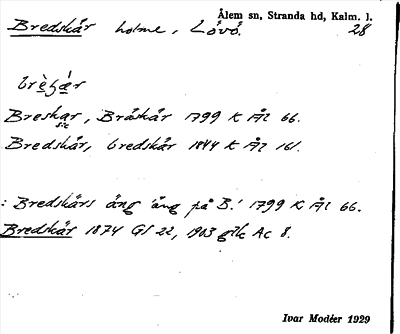 Ålem sn, Stranda hd, Kalm. l.
Bredskär holme, Lövö. 28
Breskar, Bråskår 1799 K Ål 66.
sic
Bredskär, bredskår 1844 K Ål 161.
: Bredskärs äng 'äng på B.' 1799 K Ål 66.
Bredskär 1874 Gl 22, 1903 Ac 8.
Ivar Modéer 1929